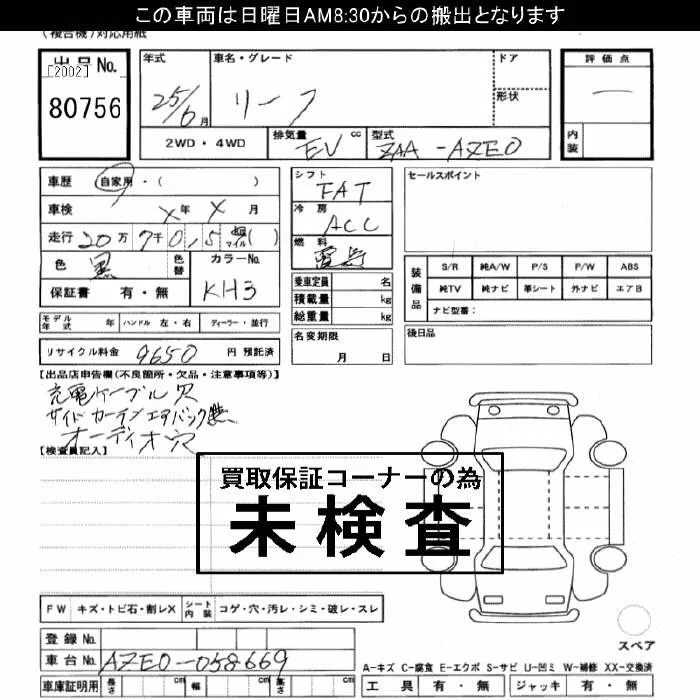 この車両は日曜日AM8:30からの搬出となります
(複合機)対応用紙
出品No. [2002] 80756
年式 25/6月
車名・グレード リーフ
ドア
形状
評価点 ー
内装
2WD・4WD 排気量 EV cc 型式 ZAA-AZE0
車歴 自家用・( )
車検 X年 X月
走行 20万 7千 0,5 マイル( )
色 黒 色替 カラーNo. KH3
保証書 有・無
シフト FAT
冷房 ACC
燃料 電気
乗車定員 名
積載量 kg
総重量 kg
セールスポイント
装備品 S/R 純A/W P/S P/W ABS
純TV 純ナビ 革シート 外ナビ エアB
ナビ型番:
モデル年式 年 ハンドル 左・右 ディーラー・並行
名変期限 月 日
後日品
リサイクル料金 9650 円 預託済
【出品店申告欄(不良箇所・欠品・注意事項等)】
充電ケーブル欠
サイドカーテンエアバック無
オーディオ穴
【検査員記入】
買取保証コーナーの為
未検査
FW キズ・トビ石・割レX シート内装 コゲ・穴・汚レ・シミ・破レ・スレ
登録No.
車台No. AZE0-058669
車庫証明用 長さ cm 幅 cm 高さ cm
スペア
A-キズ C-腐食 E-エクボ S-サビ U-凹ミ W-補修 XX-交換済
工具 有・無 ジャッキ 有・無